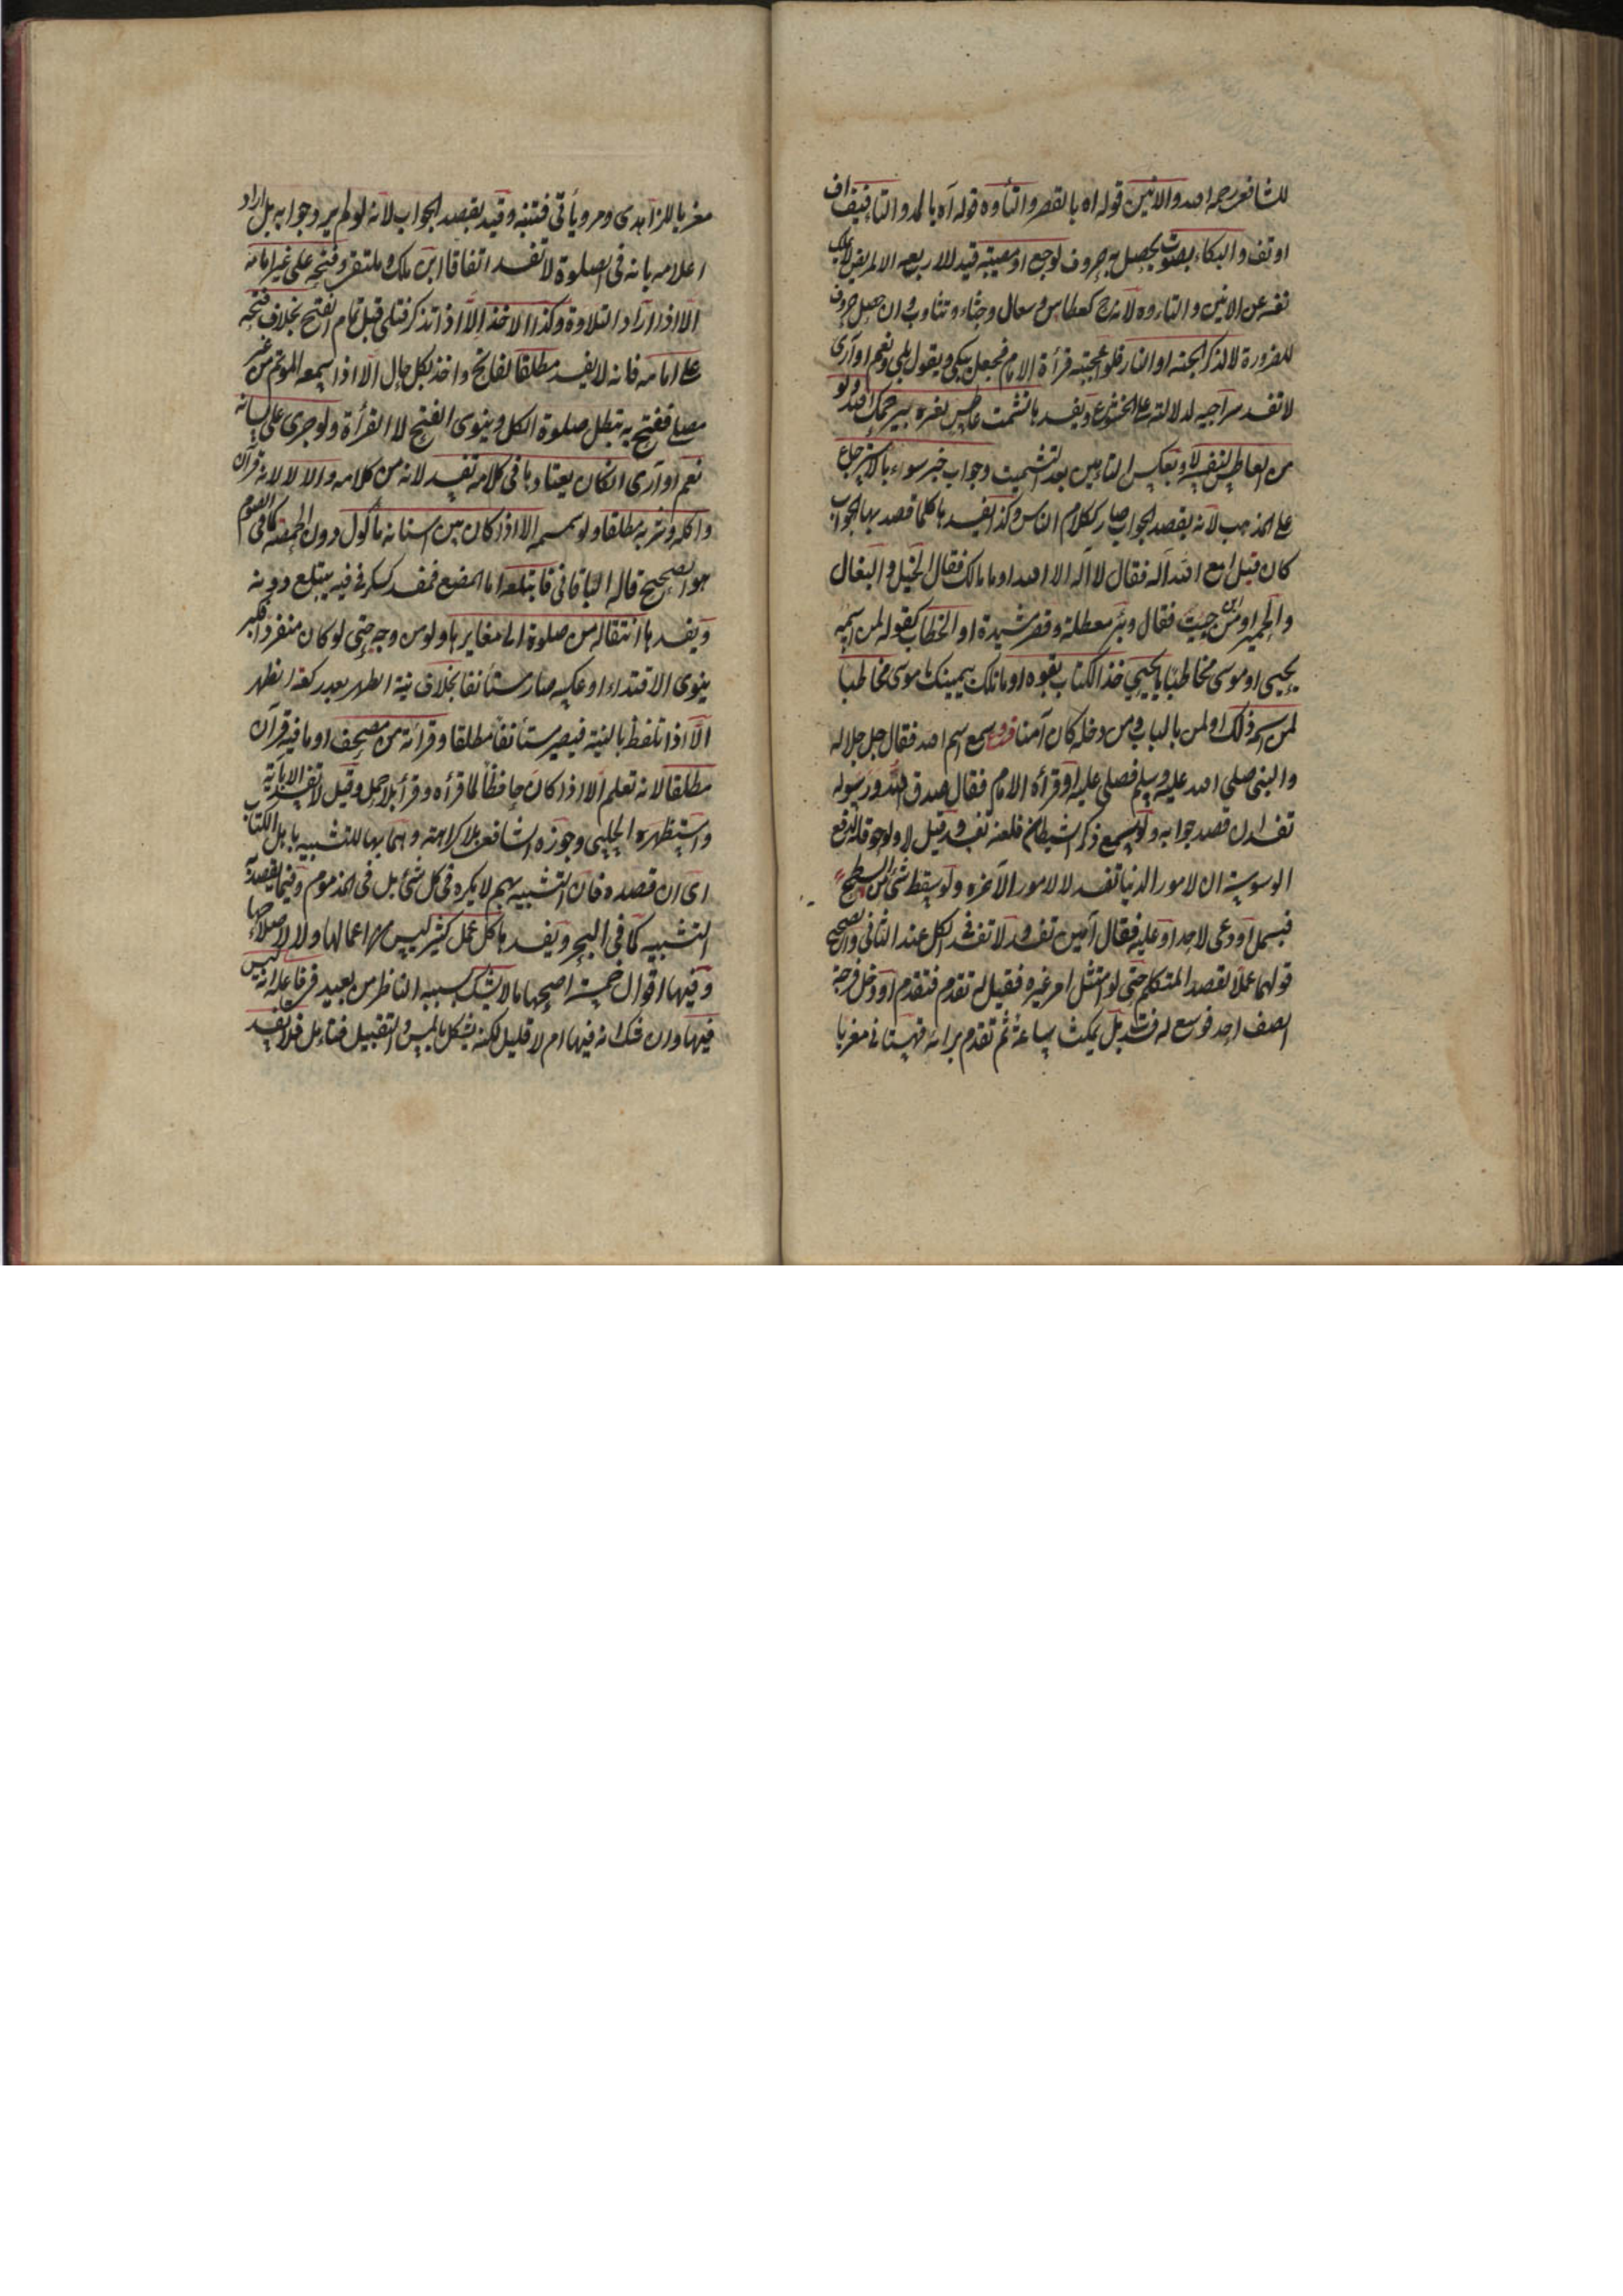 للشافعى رحمه الله والانين قوله اه بالقصر والتأوه قوله آه بالمد والتافيف اف
او تف والبكاء بصوت يحصل به حروف لوجع او مصيبة قيد للاربعه الا لمريض لا يملك
نفسه عن الانين والتاوه لانه ح كعطاس وسعال وجشاء وتثاوب وان حصل حروف
للضرورة لا لذكر الجنة او النار فلو اعجبته قرأة الامام فجعل يبكى ويقول بلى ونعم او آرى
لا تفسد سراجيه لدلالته على الخشوع ويفسدها تشمت عاطس لغيره بيرحمك الله ولو
من العاطس لنفسه لا وبعكس التامين بعد التشميت وجواب خبر سوء بالاسترجاع
على المذهب لانه بقصد الجواب صار ككلام الناس وكذا يفسدها كلما قصد بها الجواب
كان قيل امع الله اله فقال لا اله الا الله او ما مالك فقال الخيل والبغال
والحمير او من اين جيت فقال وبئر معطلة وقصر مشيدة او الخطاب كقوله لمن اسمه
يحيى او موسى مخاطبا يا يحيى خذ الكتاب بقوه او ما تلك بيمينك يا موسى مخاطبا
لمن اسمه ذلك او لمن بالباب ومن دخله كان آمنا فروع سمع اسم الله فقال جل جلاله
والنبى صلى الله عليه وسلم فصلى عليه او قرأة الامام فقال صدق الله ورسوله
تفسد ان قصد جوابه ولو سمع ذكر الشيطان فلعنه تفسد وقيل لا ولو حوقل لدفع
الوسوسة ان لامور الدنيا تفسد لا لامور الآخره ولو سقط شئ من السطح
فبسمل او دعى لاحد او عليه فقال آمين تفسد ولا تفسد فى الكل عند الثانى والصحيح
قولهما عملا بقصد المتكلم حتى لو امتثل امر غيره فقيل له تقدم فتقدم او دخل فرجة
الصف احد فوسع له فسدت بل يمكث ساعة ثم تقدم برايه قهستانى مغربا
مغربا للزاهدى ومر وياتى فتنبه وقيد بقصد الجواب لانه لو لم يرد جوابه بل اراد
اعلامه بانه فى الصلوة لا تفسد اتفاقا ابن ملك وملتقى وفتحه على غير امامه
الا اذا اراد التلاوة وكذا الاخذ الا اذا تذكر فتلى قبل تمام الفتح بخلاف فتحه
على امامه فانه لا يفسد مطلقا لفاتح واخذ بكل حال الا اذا سمعه الموتم من غير
مصلى ففتح به تبطل صلوة الكل وينوى الفتح لا القرأة ولو جرى على لسانه
نعم او آرى ان كان يعتادها فى كلامه تفسد لانه من كلامه والا لا لانه قرآن
واكله وشربه مطلقا ولو سمسمه الا اذا كان بين اسنانه مأكول دون الحمصة كما فى الصوم
هو الصحيح قاله الباقانى فابتلعه اما المضغ فمفسد كسكر فى فيه يبتلع ذوبه
ويفسدها انتقاله من صلوة الى مغايرها ولو من وجه حتى لو كان منفردا فكبر
ينوى الاقتداء او عكسه صار مستأنفا بخلاف نية الظهر بعد ركعة الظهر
الا اذا تلفظ بالنية فيصير مستأنفا مطلقا وقرأته من مصحف او ما فيه قرآن
مطلقا لانه تعلم الا اذا كان حافظا لما قرأه وقرأ بلا حمل وقيل لا تفسد الا بآية
واستظهره الحلبى وجوزه الشافعى بلا كراهة وهما بها للتشبيه باهل الكتاب
اى ان قصده فان التشبيه بهم لا يكره فى كل شئ بل فى المذموم وفيما يقصد به
التشبيه كما فى البحر ويفسدها كل عمل كثير ليس من اعمالها ولا لاصلاحها
وفيها اقوال خمسة اصحها ما لا يشك بسببه الناظر من بعيد فى فاعله انه ليس
فيها وان شك انه فيها ام لا فقليل لكنه يشكل بالمس والتقبيل فتامل فلا يفسد